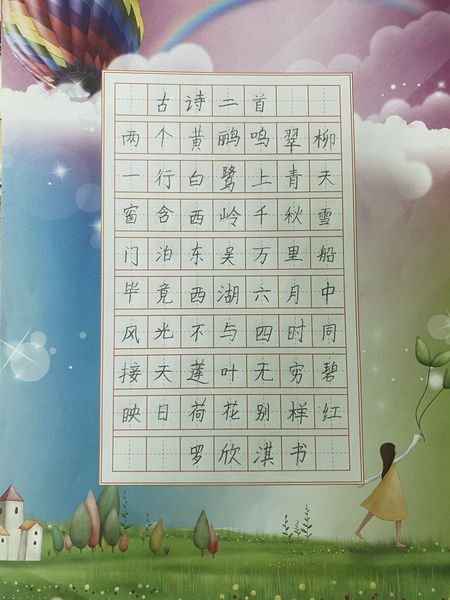 古诗二首
两个黄鹂鸣翠柳
一行白鹭上青天
窗含西岭千秋雪
门泊东吴万里船
毕竟西湖六月中
风光不与四时同
接天莲叶无穷碧
映日荷花别样红
罗欣淇书